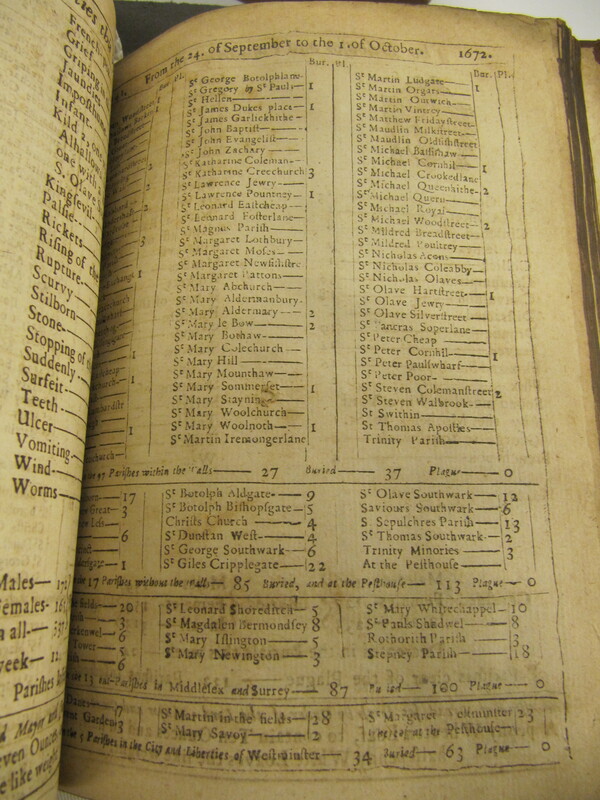 French
Grief
Griping in
Jaundies
Imposth
Infant
Kild
one
Alhallow
one with
S. Olave
Kingsevil
Palsie
Rickets
Rising of the
Rupture
Scurvy
Stilborn
Stone
Stopping of
Suddenly
Surfeit
Teeth
Ulcer
Vomiting
Wind
Worms
Males— 172
Females—
all—
week—
Parishes
Mayor and
even Ounces
like weight
From the 24. of September to the 1. of October. 1672.
Bur. Pl.
St George Botolphlane
St Gregory by St Pauls— 1
St Hellen
St James Dukes place— 1
St James Garlickhithe
St John Baptist
St John Evangelist
St John Zachary
St Katharine Coleman
St Katharine Creechurch 3
St Lawrence Jewry
St Lawrence Pountney— 1
St Leonard Eastcheap
St Leonard Fosterlane
St Magnus Parish
St Margaret Lothbury
St Margaret Moses
St Margaret Newfishstre
St Margaret Pattons
St Mary Abchurch
St Mary Aldermanbury
St Mary Aldermary— 2
St Mary le Bow— 2
St Mary Bothaw
St Mary Colechurch
St Mary Hill
St Mary Mounthaw
St Mary Sommerset— 1
St Mary Stayning
St Mary Woolchurch
St Mary Woolnoth— 1
St Martin Iremongerlane
Bur. Pl.
St Martin Ludgate
St Martin Orgars— 1
St Martin Outwich
St Martin Vintrey
St Matthew Fridaystreet
St Maudlin Milkstreet
St Maudlin Oldfishstreet
St Michael Bassishaw
St Michael Cornhil— 1
St Michael Crookedlane
St Michael Queenhithe— 2
St Michael Quern
St Michael Royal
St Michael Woodstreet— 2
St Mildred Breadstreet
St Mildred Poultrey
St Nicholas Acons
St Nicholas Coleabby
St Nicholas Olaves
St Olave Hartstreet— 1
St Olave Jewry
St Olave Silverstreet
St Pancras Soperlane
St Peter Cheap
St Peter Cornhil— 1
St Peter Paulswharf
St Peter Poor
St Steven Colemanstreet 2
St Steven Walbrook
St Swithin
St Thomas Apostles
Trinity Parish
the 97 Parishes within the Walls— 27 Buried— 37 Plague— 0
17
Great— 3
Less
6
1
St Botolph Aldgate— 9
St Botolph Bishopsgate— 5
Christs Church— 4
St Dunstan West— 4
St George Southwark— 6
St Giles Cripplegate— 22
St Olave Southwark— 12
Saviours Southwark— 6
S. Sepulchres Parish— 13
St Thomas Southwark— 2
Trinity Minories— 3
At the Pesthouse
the 17 Parishes without the Walls— 85 Buried, and at the Pesthouse— 113 Plague— 0
fields— 20
3
6
Tower— 5
6
St Leonard Shoreditch— 5
St Magdalen Bermondsey 8
St Mary Islington— 5
St Mary Newington— 3
St Mary Whitechappel— 10
St Pauls Shadwel— 8
Rothorith Parish— 3
Stepney Parish— 18
13 out-Parishes in Middlesex and Surrey— 87 Buried— 100 Plague— 0
Danes— 7
Garden 3
St Martin in the fields— 28
St Mary Savoy— 2
St Margaret Westminster 23
at the Pesthouse
the 5 Parishes in the City and Liberties of Westminster— 34 Buried— 63 Plague— 0